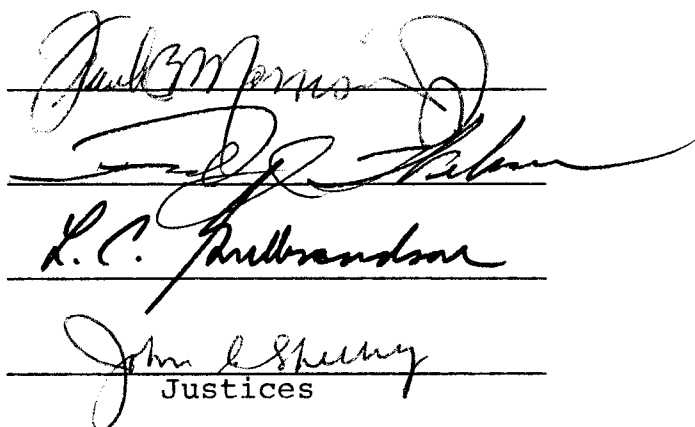 Frank B Morrison Jr
L. C. Gulbrandson
John C Sheehy
Justices